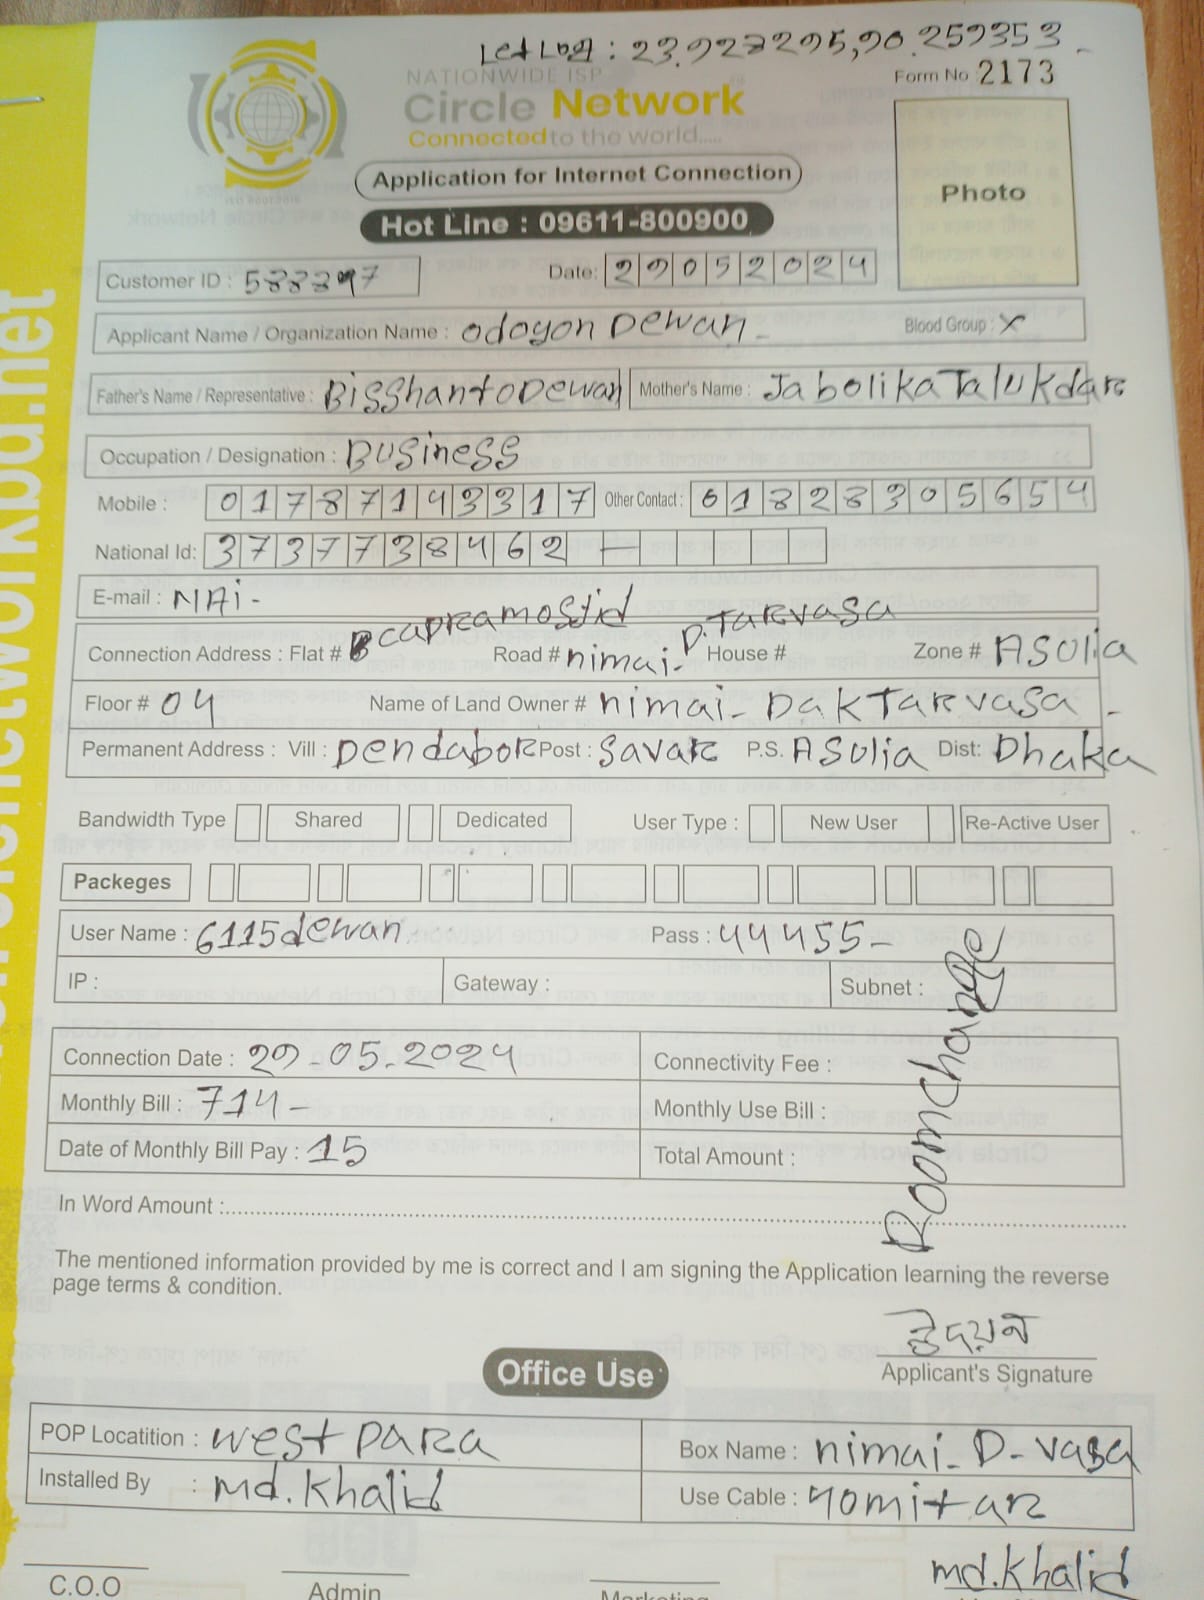 Let Log : 23.927295,90.259353
NATIONWIDE ISP
Form No 2173
Circle Network
Connected to the world.....
Application for Internet Connection
Photo
Hot Line : 09611-800900
Customer ID :
Date: 29052024
Applicant Name / Organization Name : Odoyon Dewan -
Blood Group : X
Father's Name / Representative : Bisshanto Dewan
Mother's Name : Jabolika Talukdar
Occupation / Designation : Business
Mobile : 01787143317
Other Contact : 01828305654
National Id: 3737738462 —
E-mail : NAi -
Capramosjid D. TARVASA
Connection Address : Flat # B Road # nimai- House # Zone # ASulia
Floor # 04 Name of Land Owner # nimai- DakTarvasa -
Permanent Address : Vill : Dendabor Post : Savar P.S. ASulia Dist: Dhaka
Bandwidth Type Shared Dedicated User Type : New User Re-Active User
Packeges
User Name : 6115dewan Pass : 44455-
IP : Gateway : Subnet :
Room change
Connection Date : 29-05-2024 Connectivity Fee :
Monthly Bill : 714- Monthly Use Bill :
Date of Monthly Bill Pay : 15 Total Amount :
In Word Amount :
The mentioned information provided by me is correct and I am signing the Application learning the reverse
page terms & condition.
উদয়ন
Applicant's Signature
Office Use
POP Locatition : west para Box Name : nimai- D- vasa
Installed By : md. Khalid Use Cable : 40mitar
md. Khalid
C.O.O Admin Marketing